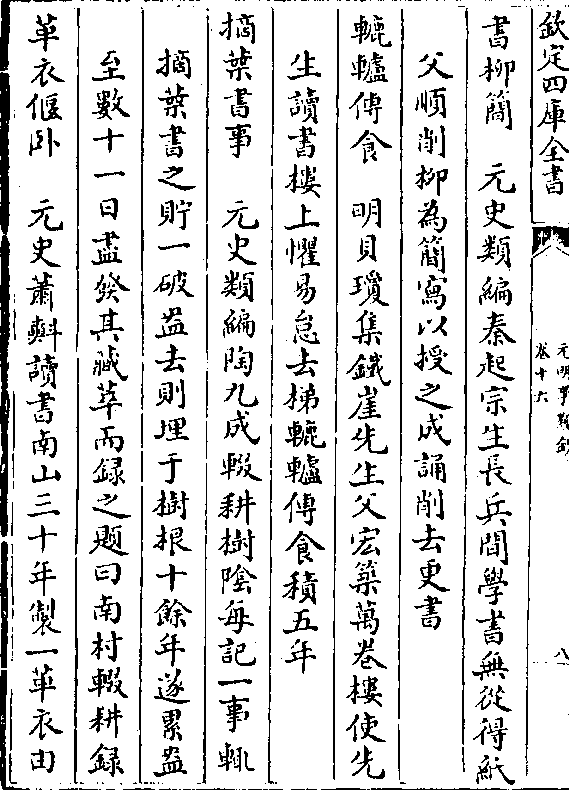 欽定四庫全書
元明事類鈔
卷十六
八
書柳簡　元史類編秦起宗生長兵間學書無從得紙
父順削柳為簡寫以授之成誦削去更書
轆轤傳食　明貝瓊集鐵崖先生父宏築萬卷樓使先
生讀書樓上懼易怠去梯轆轤傳食積五年
摘葉書事　元史類編陶九成輟耕樹陰每記一事輒
摘葉書之貯一破盎去則埋于樹根十餘年遂累盎
至數十一日盡發其藏萃而録之題曰南村輟耕録
革衣偃卧　元史蕭㪺讀書南山三十年製一革衣由